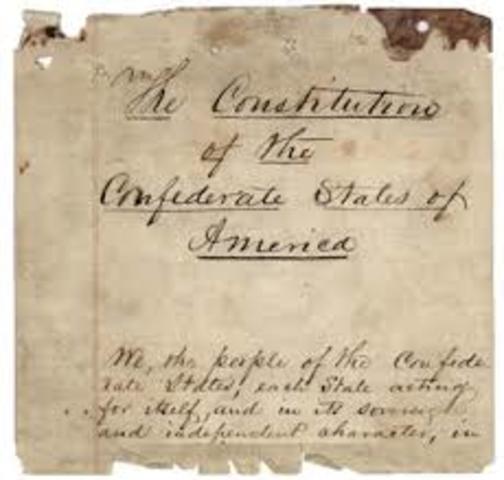 The Constitution
of the
Confederate States of
America
We, the people of the Confede
rate States, each State acting
for itself, and in its sovereign
and independent character, in